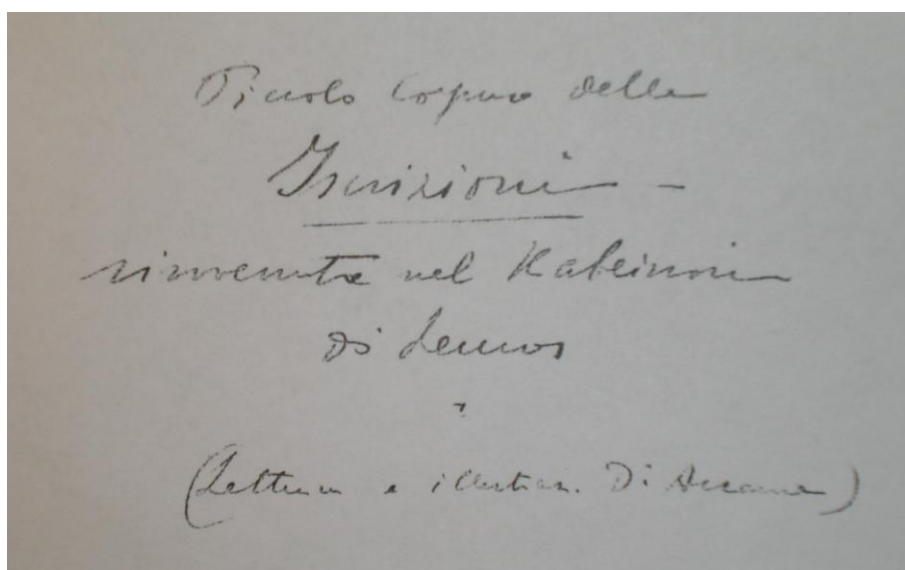 Piccolo Corpus delle
Iscrizioni -
rinvenute nel Kabeirion
di Lemnos
(Lettura e illustraz. Di Accame)